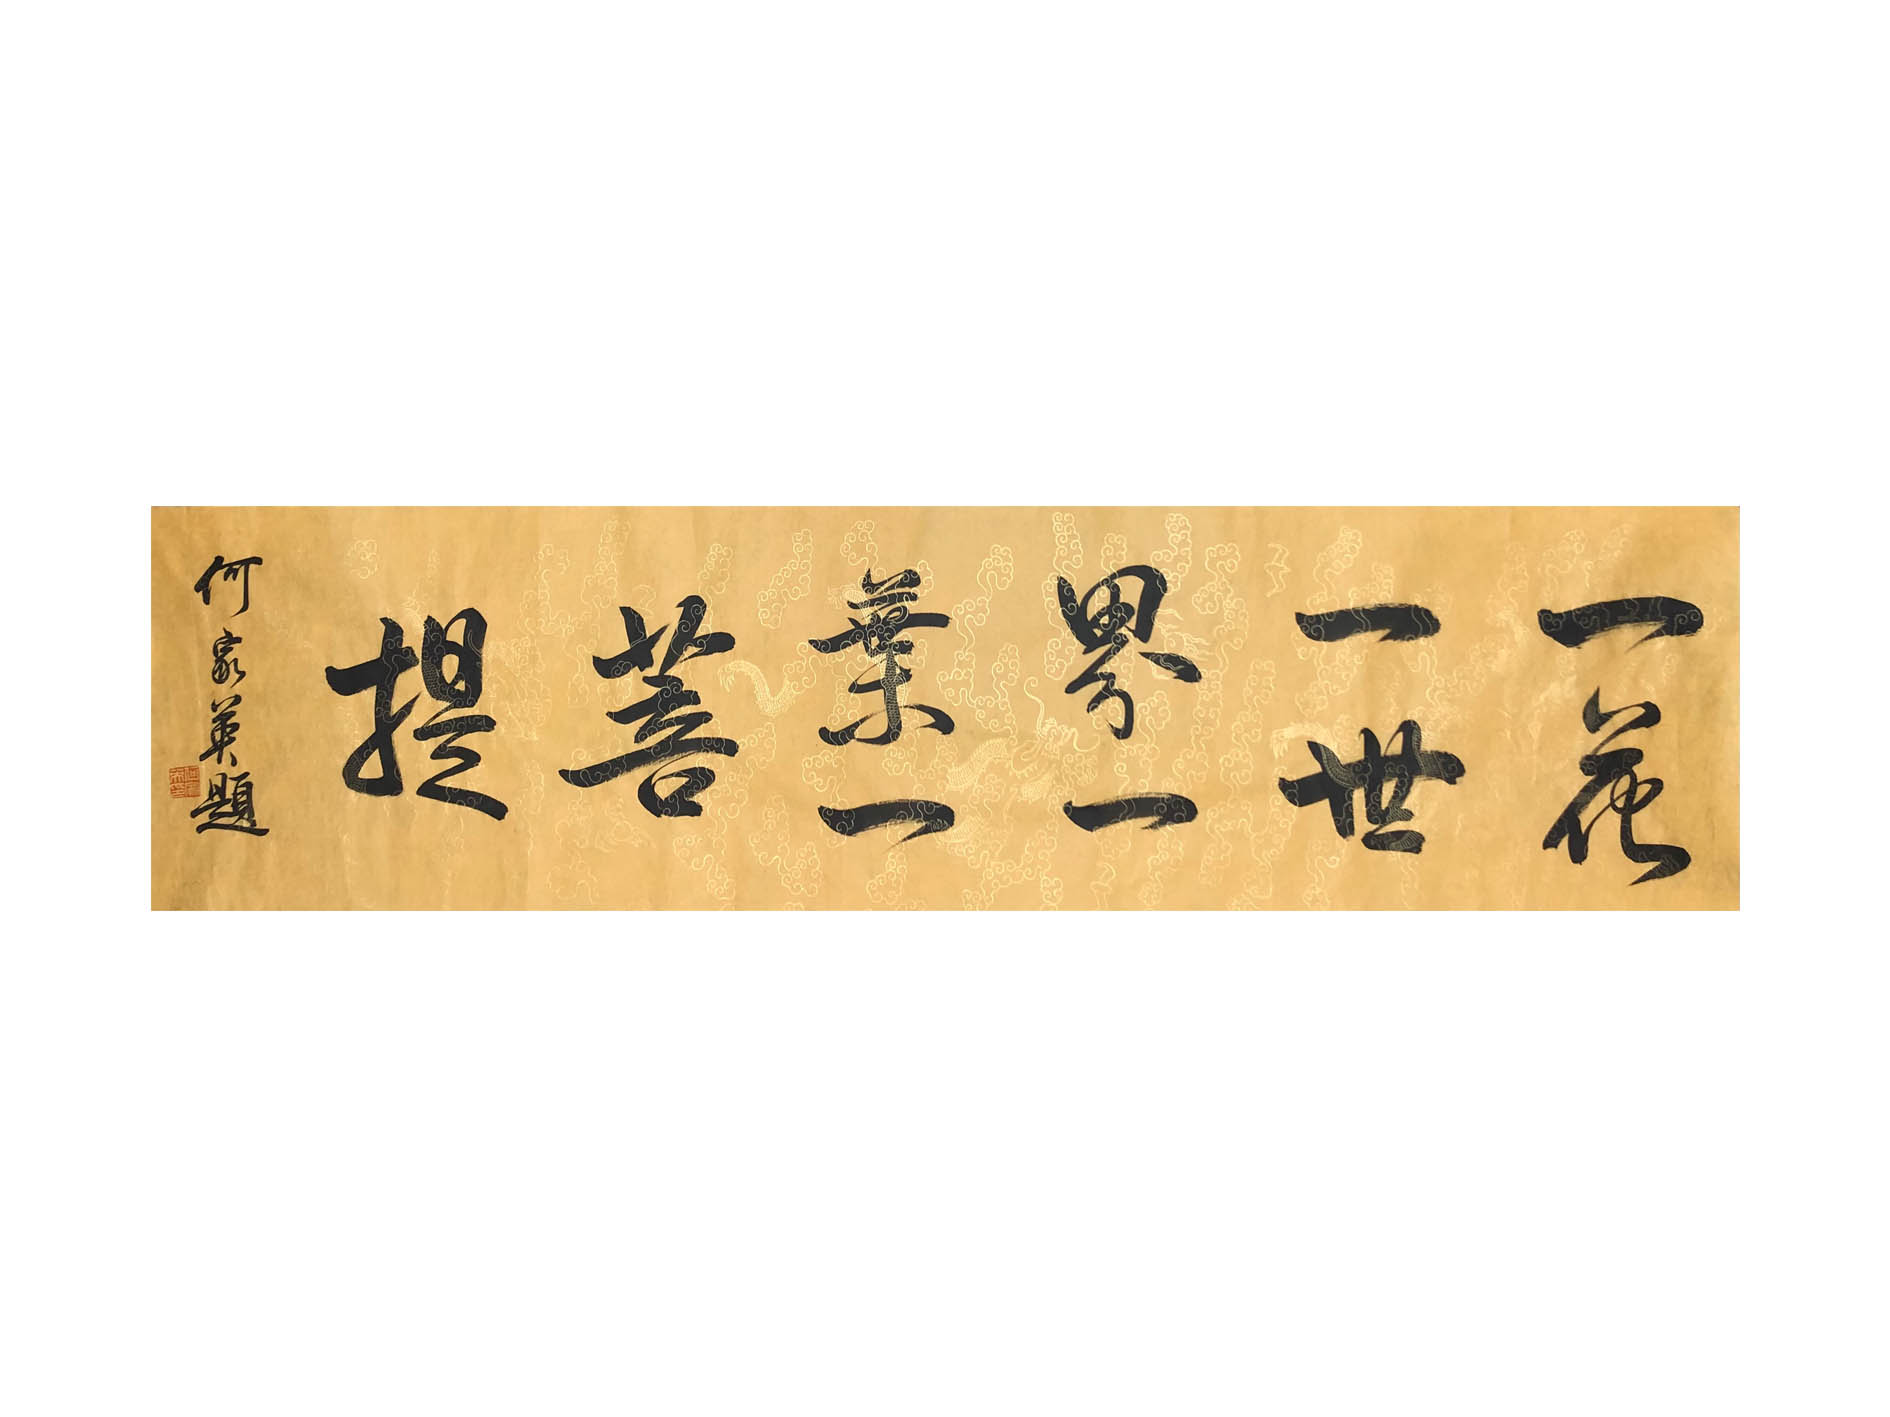 一花
一世
界一
葉一
菩
提
何家英題